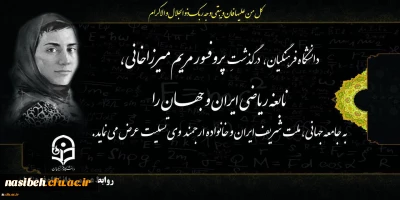 کل من علیها فان و یبقی وجه ربک ذو الجلال و الاکرام
دانشگاه فرهنگیان، درگذشت پروفسور مریم میرزاخانی،
نابغه ریاضی ایران و جهان را
به جامعه جهانی، ملت شریف ایران و خانواده ارجمند وی تسلیت عرض می نماید.
روابط
nasibeh.cfu.ac.ir